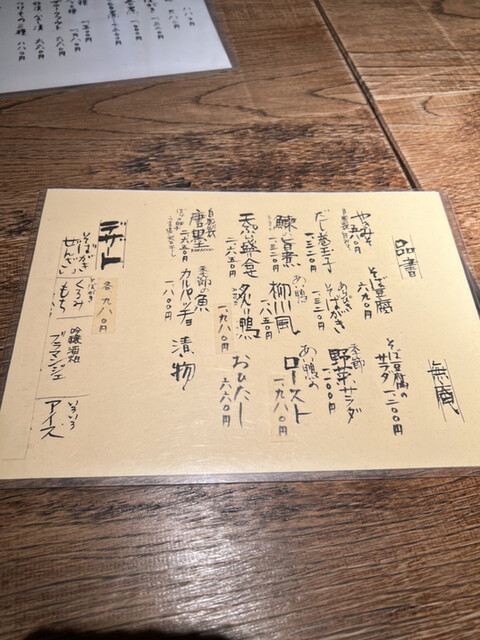 品書
無庵
やきみそ
五八〇円
そば豆腐
六九〇円
そば豆腐の
サラダ
一、二〇〇円
だし巻玉子
一、三二〇円
あらびき
そばがき
一、三二〇円
季節
野菜サラダ
一、一〇〇円
鰊の旨煮
一、三二〇円
あい鴨
柳川風
一、八五〇円
あい鴨の
ロースト
一、九八〇円
天ぷら盛合
二、八六〇円
炙り鴨
一、九八〇円
おひたし
六六〇円
自家製
唐墨
二、六五〇円
季節の魚
カルパッチョ
一、八〇〇円
漬物
デザート
各 九八〇円
そばがき
ぜんざい
そばがき
くるみ
もち
吟醸酒粕
ブラマンジェ
いろいろ
アイス